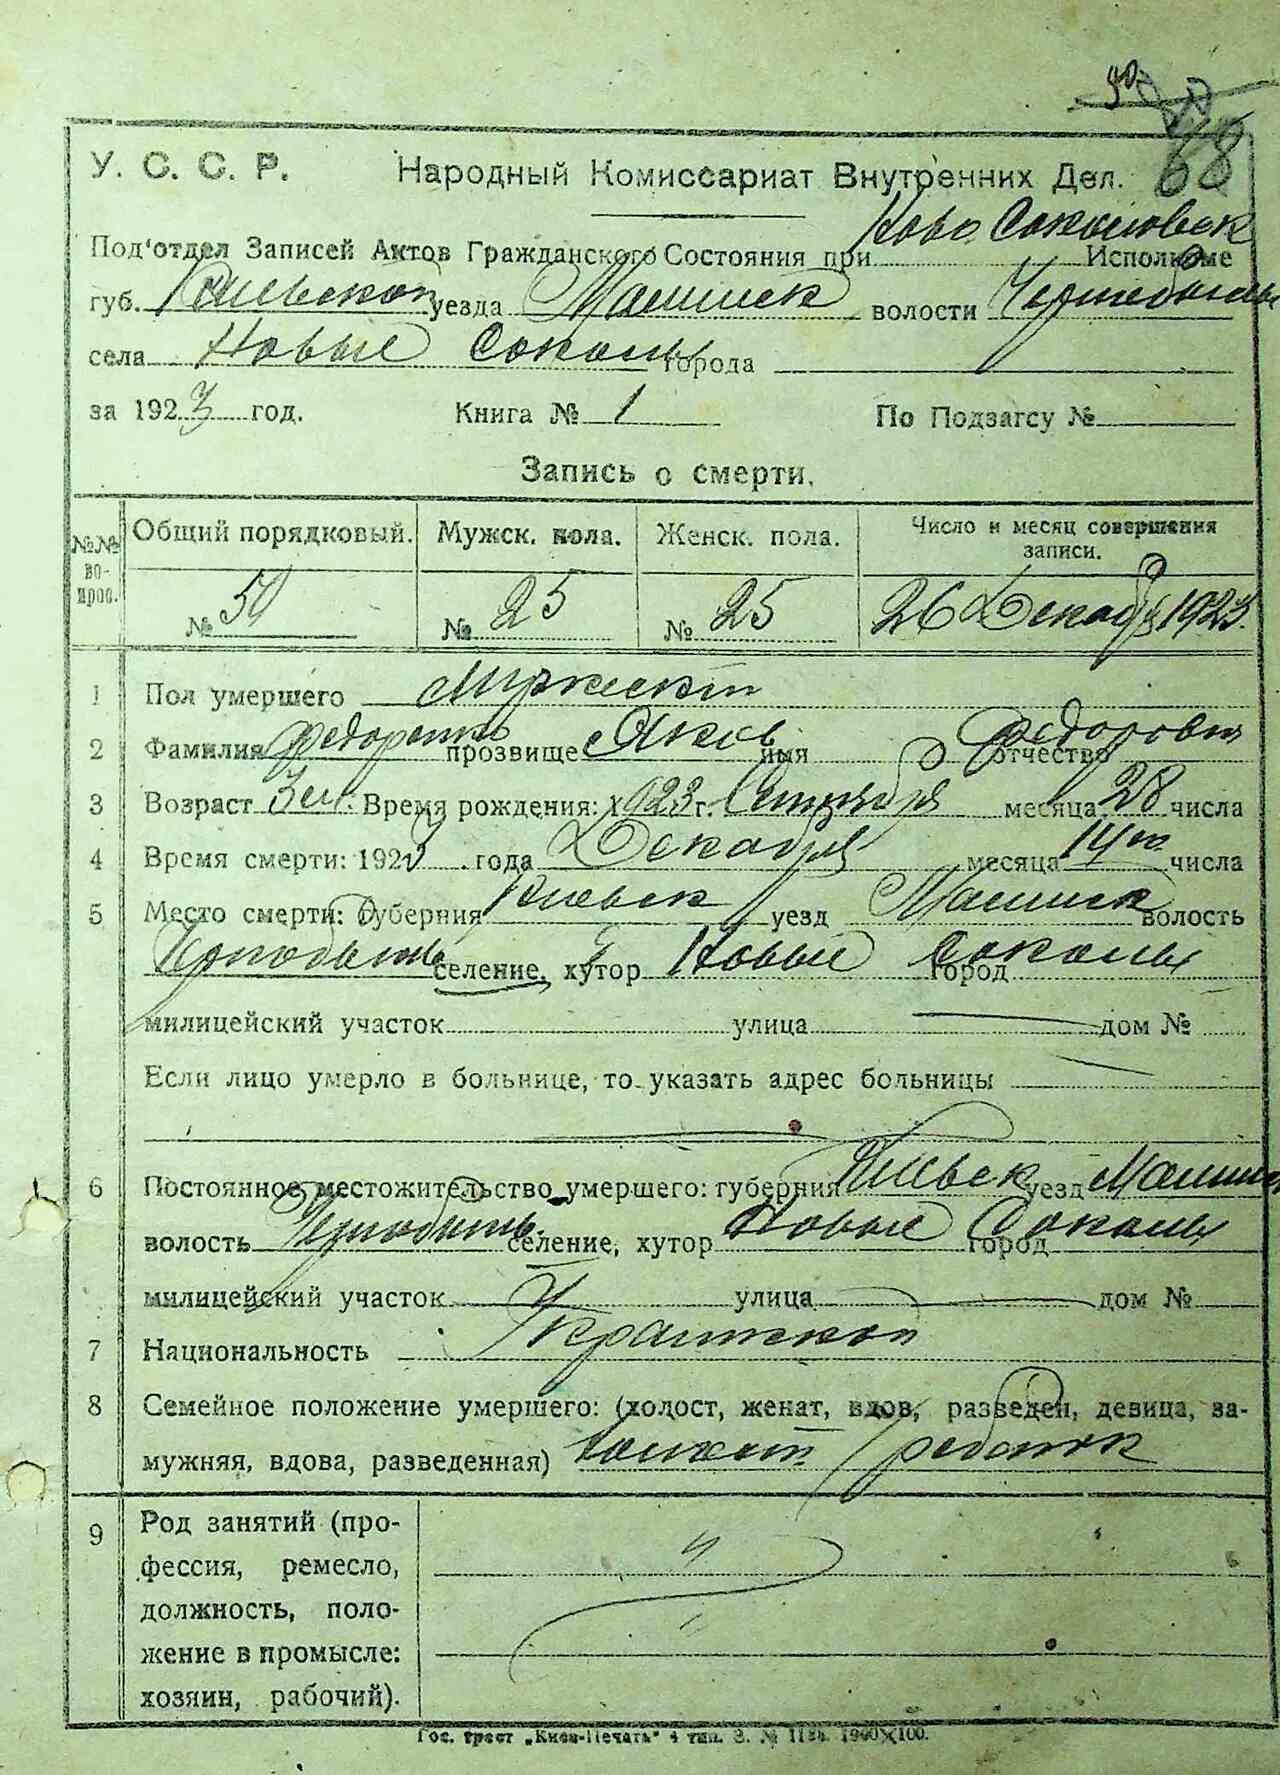 У. С. С. Р. Народный Комиссариат Внутренних Дел. 68
Под'отдел Записей Актов Гражданского Состояния при Ново Соколовск Исполкоме
губ. Киевской уезда Малинск волости
села Новые Соколы города
за 1923 год. Книга № 1 По Подзагсу №
Запись о смерти.
№№ во- прос. Общий порядковый. Мужск. пола. Женск. пола. Число и месяц совершения записи.
№ 50 № 25 № 25 26 Декабря 1923.
1 Пол умершего Мужской
2 Фамилия Федоренко прозвище Яков имя отчество Федорович
3 Возраст 3 м. Время рождения: 1923 г. Сентября месяца 28 числа
4 Время смерти: 1923 года Декабря месяца 14го числа
5 Место смерти: Губерния Киевск уезд Малинск волость
селение, хутор Новые Соколы город
милицейский участок улица дом №
Если лицо умерло в больнице, то указать адрес больницы
6 Постоянное местожительство умершего: губерния Киевск уезд Малинск
волость селение, хутор Новые Соколы город
милицейский участок улица дом №
7 Национальность
8 Семейное положение умершего: (холост, женат, вдов, разведен, девица, за-
мужняя, вдова, разведенная) ребенок
9 Род занятий (про-
фессия, ремесло,
должность, поло-
жение в промысле:
хозяин, рабочий).
Гос. трест „Киев-Печать" 4 тип. З. №